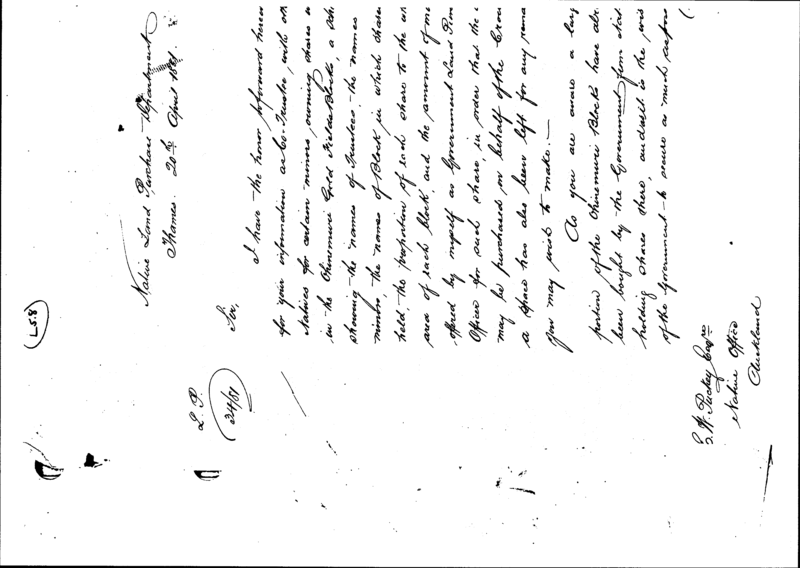 L5.8
Native Land Purchase Department
Thames. 20th April 1881.
L. P.
24/81
Sir,
I have the honor to forward herew
for your information as Co-Trustee, with oth
Natives for certain minors, owning shares in
in the Ohinemuri Gold Fields Blocks, a sche
showing the names of Trustees, the names
minors, the names of Block in which share
held, the proportion of each share to the en
area of each block, and the amount of mo
offered by myself as Government Land Pur
Officer for such share, in order that the
may be purchased on behalf of the Crow
a space has also been left for any rema
you may wish to make.—
As you are aware a larg
portion of the Ohinemuri Blocks have alr
been bought by the Government from Nat
holding shares there, and it is the wis
of the Government to secure as much as
E. W. Puckey Esqre
Native Office
Auckland